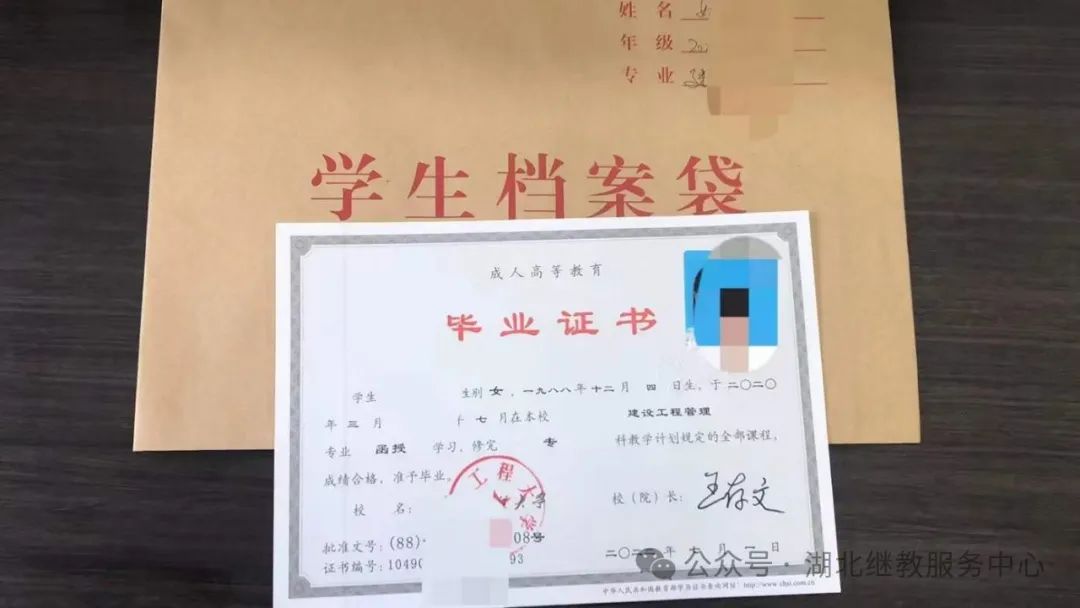 姓 名
年 级
专 业
学生档案袋
成人高等教育
毕业证书
学生 性别 女，一九八八年十二月 四 日生，于二〇二〇
年 三 月 七 月在本校 建设工程管理
专业 函授 学习，修完 专 科教学计划规定的全部课程，
成绩合格，准予毕业。
工程大
校 名： 大学 校（院）长： 王存文
批准文号：(88) 08号
二〇二 年 月 日
证书编号：1049 93
中华人民共和国教育部学历证书查询网址：http://www.chsi.com.cn
公众号 · 湖北继教服务中心